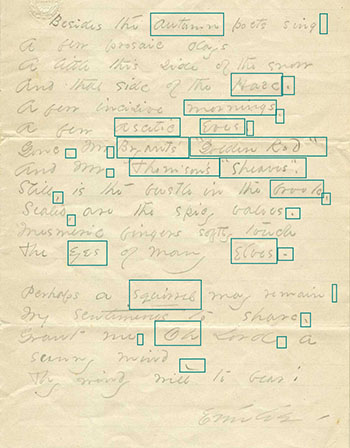 Besides the Autumn poets sing
A few prosaic days
A little this side of the snow
And that side of the Haze.
A few incisive mornings.
A few ascetic Eves.
Gone, Mr. Bryants' "Golden Rod"
And Mr. Thomsons' "Sheaves".
Still, is the bustle in the brook,
Sealed, are the spicy valves.
Mesmeric fingers softly touch
The Eyes of many Elves.
Perhaps a squirrel may remain
My sentiments to share.
Grant me, Oh Lord, a
sunny mind
Thy windy will to bear!
Emilie.